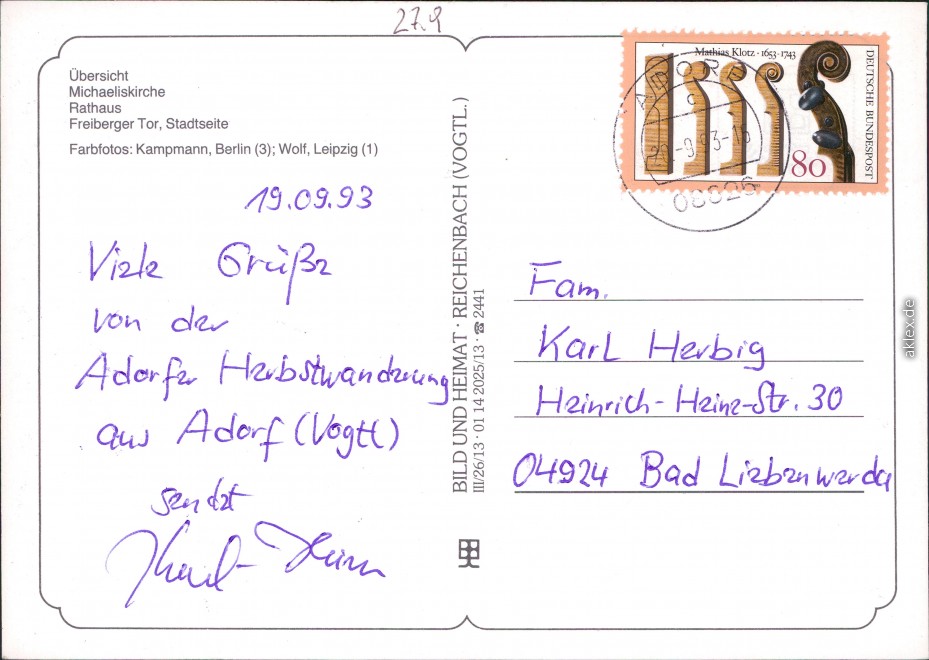 27.9
Übersicht
Michaeliskirche
Rathaus
Freiberger Tor, Stadtseite
Farbfotos: Kampmann, Berlin (3); Wolf, Leipzig (1)
19.09.93
Viele Grüße
von der
Adorfer Herbstwanderung
aus Adorf (Vogtl)
sendet
BILD UND HEIMAT · REICHENBACH (VOGTL.)
III/26/13 · 01 14 2025/13 · ☎ 2441
Mathias Klotz · 1653-1743
DEUTSCHE BUNDESPOST
80
ADORF
Fam.
Karl Herbig
Heinrich-Heine-Str. 30
04924 Bad Liebenwerda
aklex.de